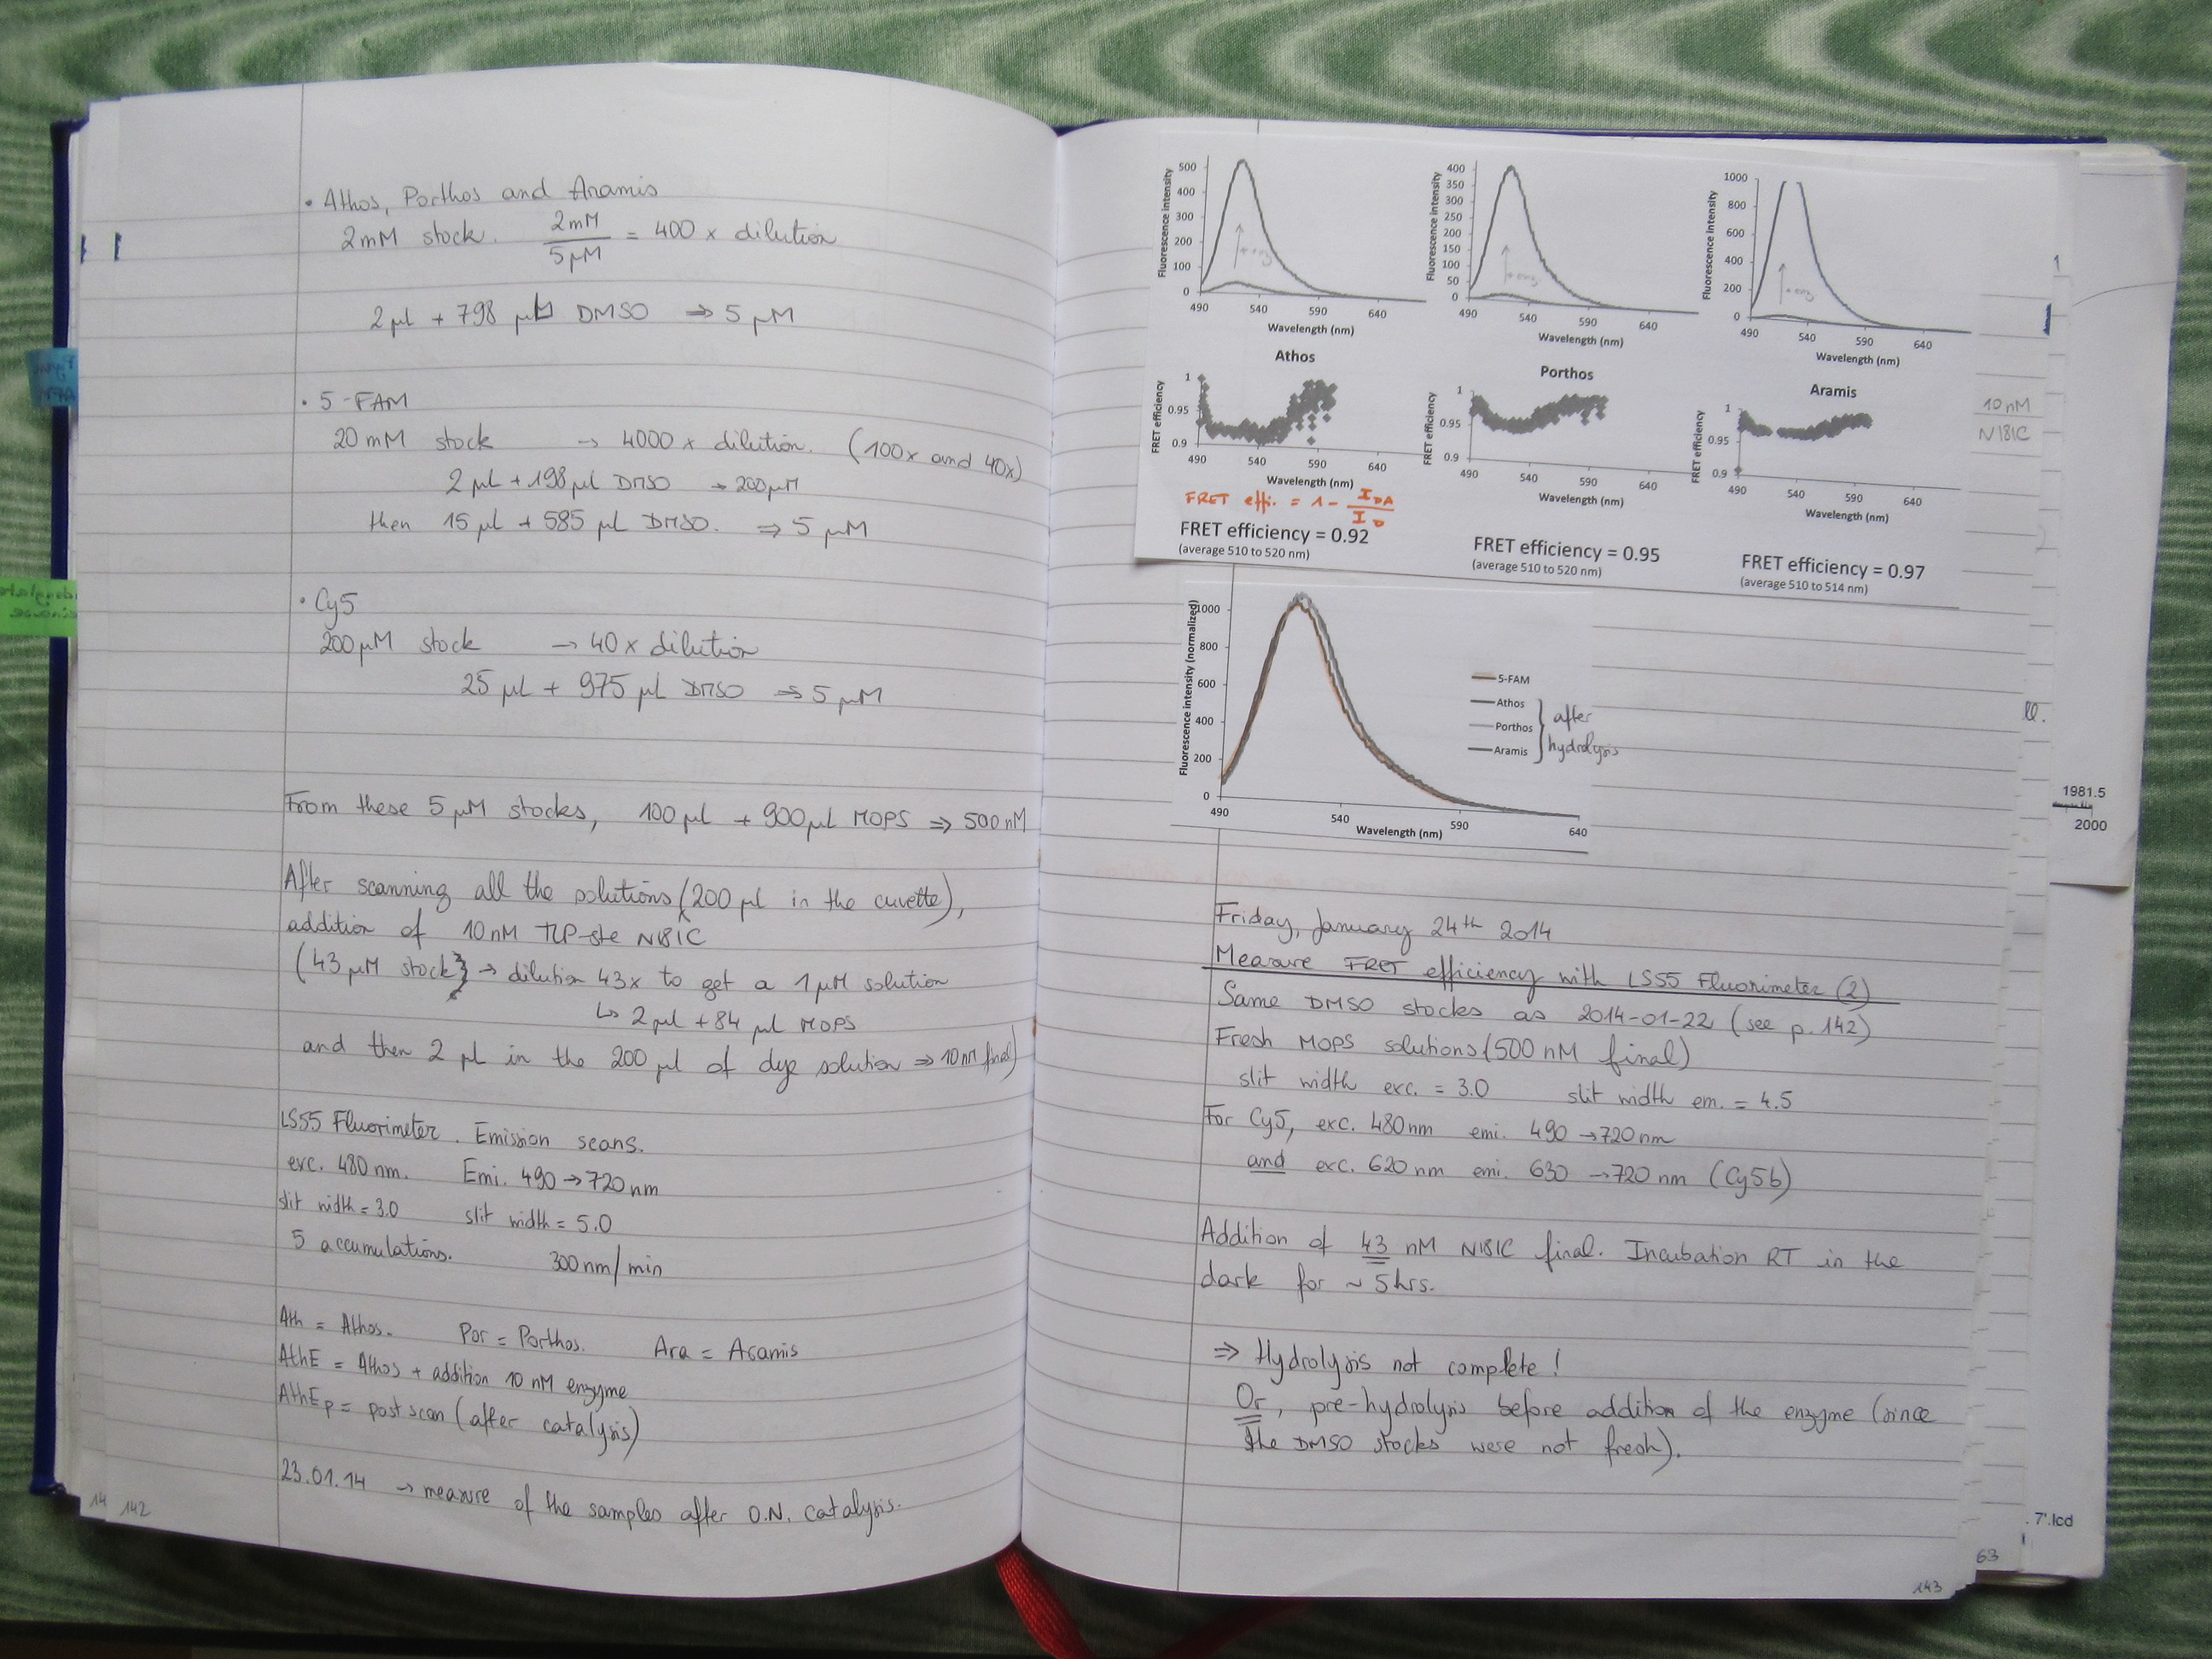 • Athos, Porthos and Aramis
2mM stock. 2mM / 5µM = 400 x dilution
2µl + 798 µl DMSO ⇒ 5 µM
• 5-FAM
20 mM stock → 4000 x dilution. (100x and 40x)
2µl + 198µl DMSO → 200µM
then 15µl + 585 µl DMSO. ⇒ 5µM
• Cy5
200µM stock → 40x dilution
25µl + 975µl DMSO ⇒ 5µM
From these 5µM stocks, 100µl + 900µl MOPS ⇒ 500nM
After scanning all the solutions (200µl in the cuvette),
addition of 10nM TLP-ste N181C
(43µM stock → dilution 43x to get a 1µM solution
↳ 2µl + 84 µl MOPS
and then 2 µl in the 200µl of dye solution ⇒ 10nM final)
LS55 Fluorimeter. Emission scans.
exc. 480nm. Emi. 490→720nm
slit width = 3.0 slit width = 5.0
5 accumulations. 300nm/min
Ath = Athos. Por = Porthos. Ara = Aramis
AthE = Athos + addition 10 nM enzyme
AthEp = post scan (after catalysis)
23.01.14 → measure of the samples after O.N. catalysis.
14 142
Fluorescence intensity
500
400
300
200
100
0
490 540 590 640
Wavelength (nm)
Fluorescence intensity
400
350
300
250
200
150
100
50
0
490 540 590 640
Wavelength (nm)
Fluorescence intensity
1000
800
600
400
200
0
490 540 590 640
Wavelength (nm)
Athos
FRET efficiency
1
0.95
0.9
490 540 590 640
Wavelength (nm)
Porthos
FRET efficiency
1
0.95
0.9
490 540 590 640
Wavelength (nm)
Aramis
FRET efficiency
1
0.95
0.9
490 540 590 640
Wavelength (nm)
10nM
N181C
FRET effi. = 1 - I DA / I D
FRET efficiency = 0.92
(average 510 to 520 nm)
FRET efficiency = 0.95
(average 510 to 520 nm)
FRET efficiency = 0.97
(average 510 to 514 nm)
Fluorescence intensity (normalized)
1000
800
600
400
200
0
490 540 590 640
Wavelength (nm)
5-FAM
Athos
Porthos
Aramis
after
hydrolysis
Friday, January 24th 2014
Measure FRET efficiency with LS55 Fluorimeter (2)
Same DMSO stocks as 2014-01-22 (see p.142)
Fresh MOPS solutions (500 nM final)
slit width exc. = 3.0 slit width em. = 4.5
For Cy5, exc. 480nm emi. 490→720nm
and exc. 620nm emi. 630→720nm (Cy5b)
Addition of 43 nM N181C final. Incubation RT in the
dark for ~5hrs.
⇒ Hydrolysis not complete!
Or, pre-hydrolysis before addition of the enzyme (since
the DMSO stocks were not fresh).
1981.5
2000
7'.lcd
63
143